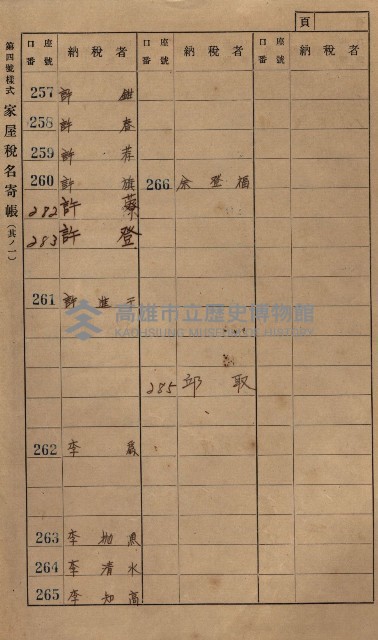 頁
第四號樣式 家屋稅名寄帳(其ノ一)
口座番號 納稅者 口座番號 納稅者 口座番號 納稅者
257 許
258 許 春
259 許
260 許 旗
282 許
283 許 登
261 許 進
262 李
263 李 魚
264 李 清水
265 李 知高
266 余 登
285 邱 取
高雄市立歷史博物館
KAOHSIUNG MUSEUM OF HISTORY